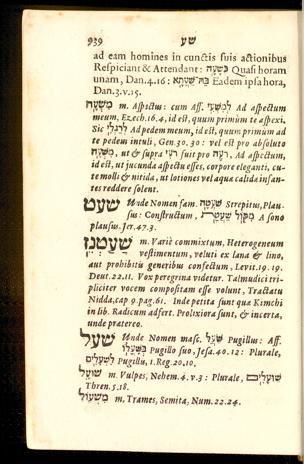 939 שע
ad eam homines in cunctis suis actionibus
Respiciant & Attendant: כְּשָׁעָה Quasi horam
unam, Dan. 4. 16: בַּהּ שַׁעֲתָא Eadem ipsa hora,
Dan. 3. v. 15.
מִשְׁעָה m. Aspectus: cum Aff. לְמִשְׁעִי Ad aspectum
meum, Ezech. 16. 4, id est, quum primum te aspexi.
Sic לְרַגְלִי Ad pedem meum, id est, quum primum ad
te pedem intuli, Gen. 30. 30: vel est pro absoluto
ut & supra suit pro Ad aspectum,
id est, ut jucunda aspectu esses, corpore eleganti, cu-
te molli & nitida, ut lotiones vel aqua calida infan-
tes reddere solent.
שעט Unde Nomen fœm. שַׁעֲטָה Strepitus, Plau-
sus: Constructum, מִקּוֹל שַׁעֲטַת A sono
plausus, Jer. 47. 3.
שעטנז m. Variè commixtum, Heterogeneum
vestimentum, veluti ex lana & lino,
aut prohibitis generibus confectum, Levit. 19. 19.
Deut. 22. 11. Vox peregrina videtur. Talmudici tri-
pliciter vocem compositam esse volunt, Tractatu
Nidda, cap 9. pag. 61. Inde petita sunt qua Kimchi
in lib. Radicum adfert. Prolixiora sunt, & incerta,
unde prætereo.
שעל Unde Nomen masc. שֹׁעַל Pugillus: Aff.
בְּשָׁעֳלוֹ Pugillo suo, Jesa. 40. 12: Plurale,
לִשְׁעָלִים Pugillis, 1. Reg. 20. 10.
שׁוּעָל m. Vulpes, Nehem. 4. v. 3: Plurale, שׁוּעָלִים,
Thren. 5. 18.
מִשְׁעוֹל m. Trames, Semita, Num. 22. 24.